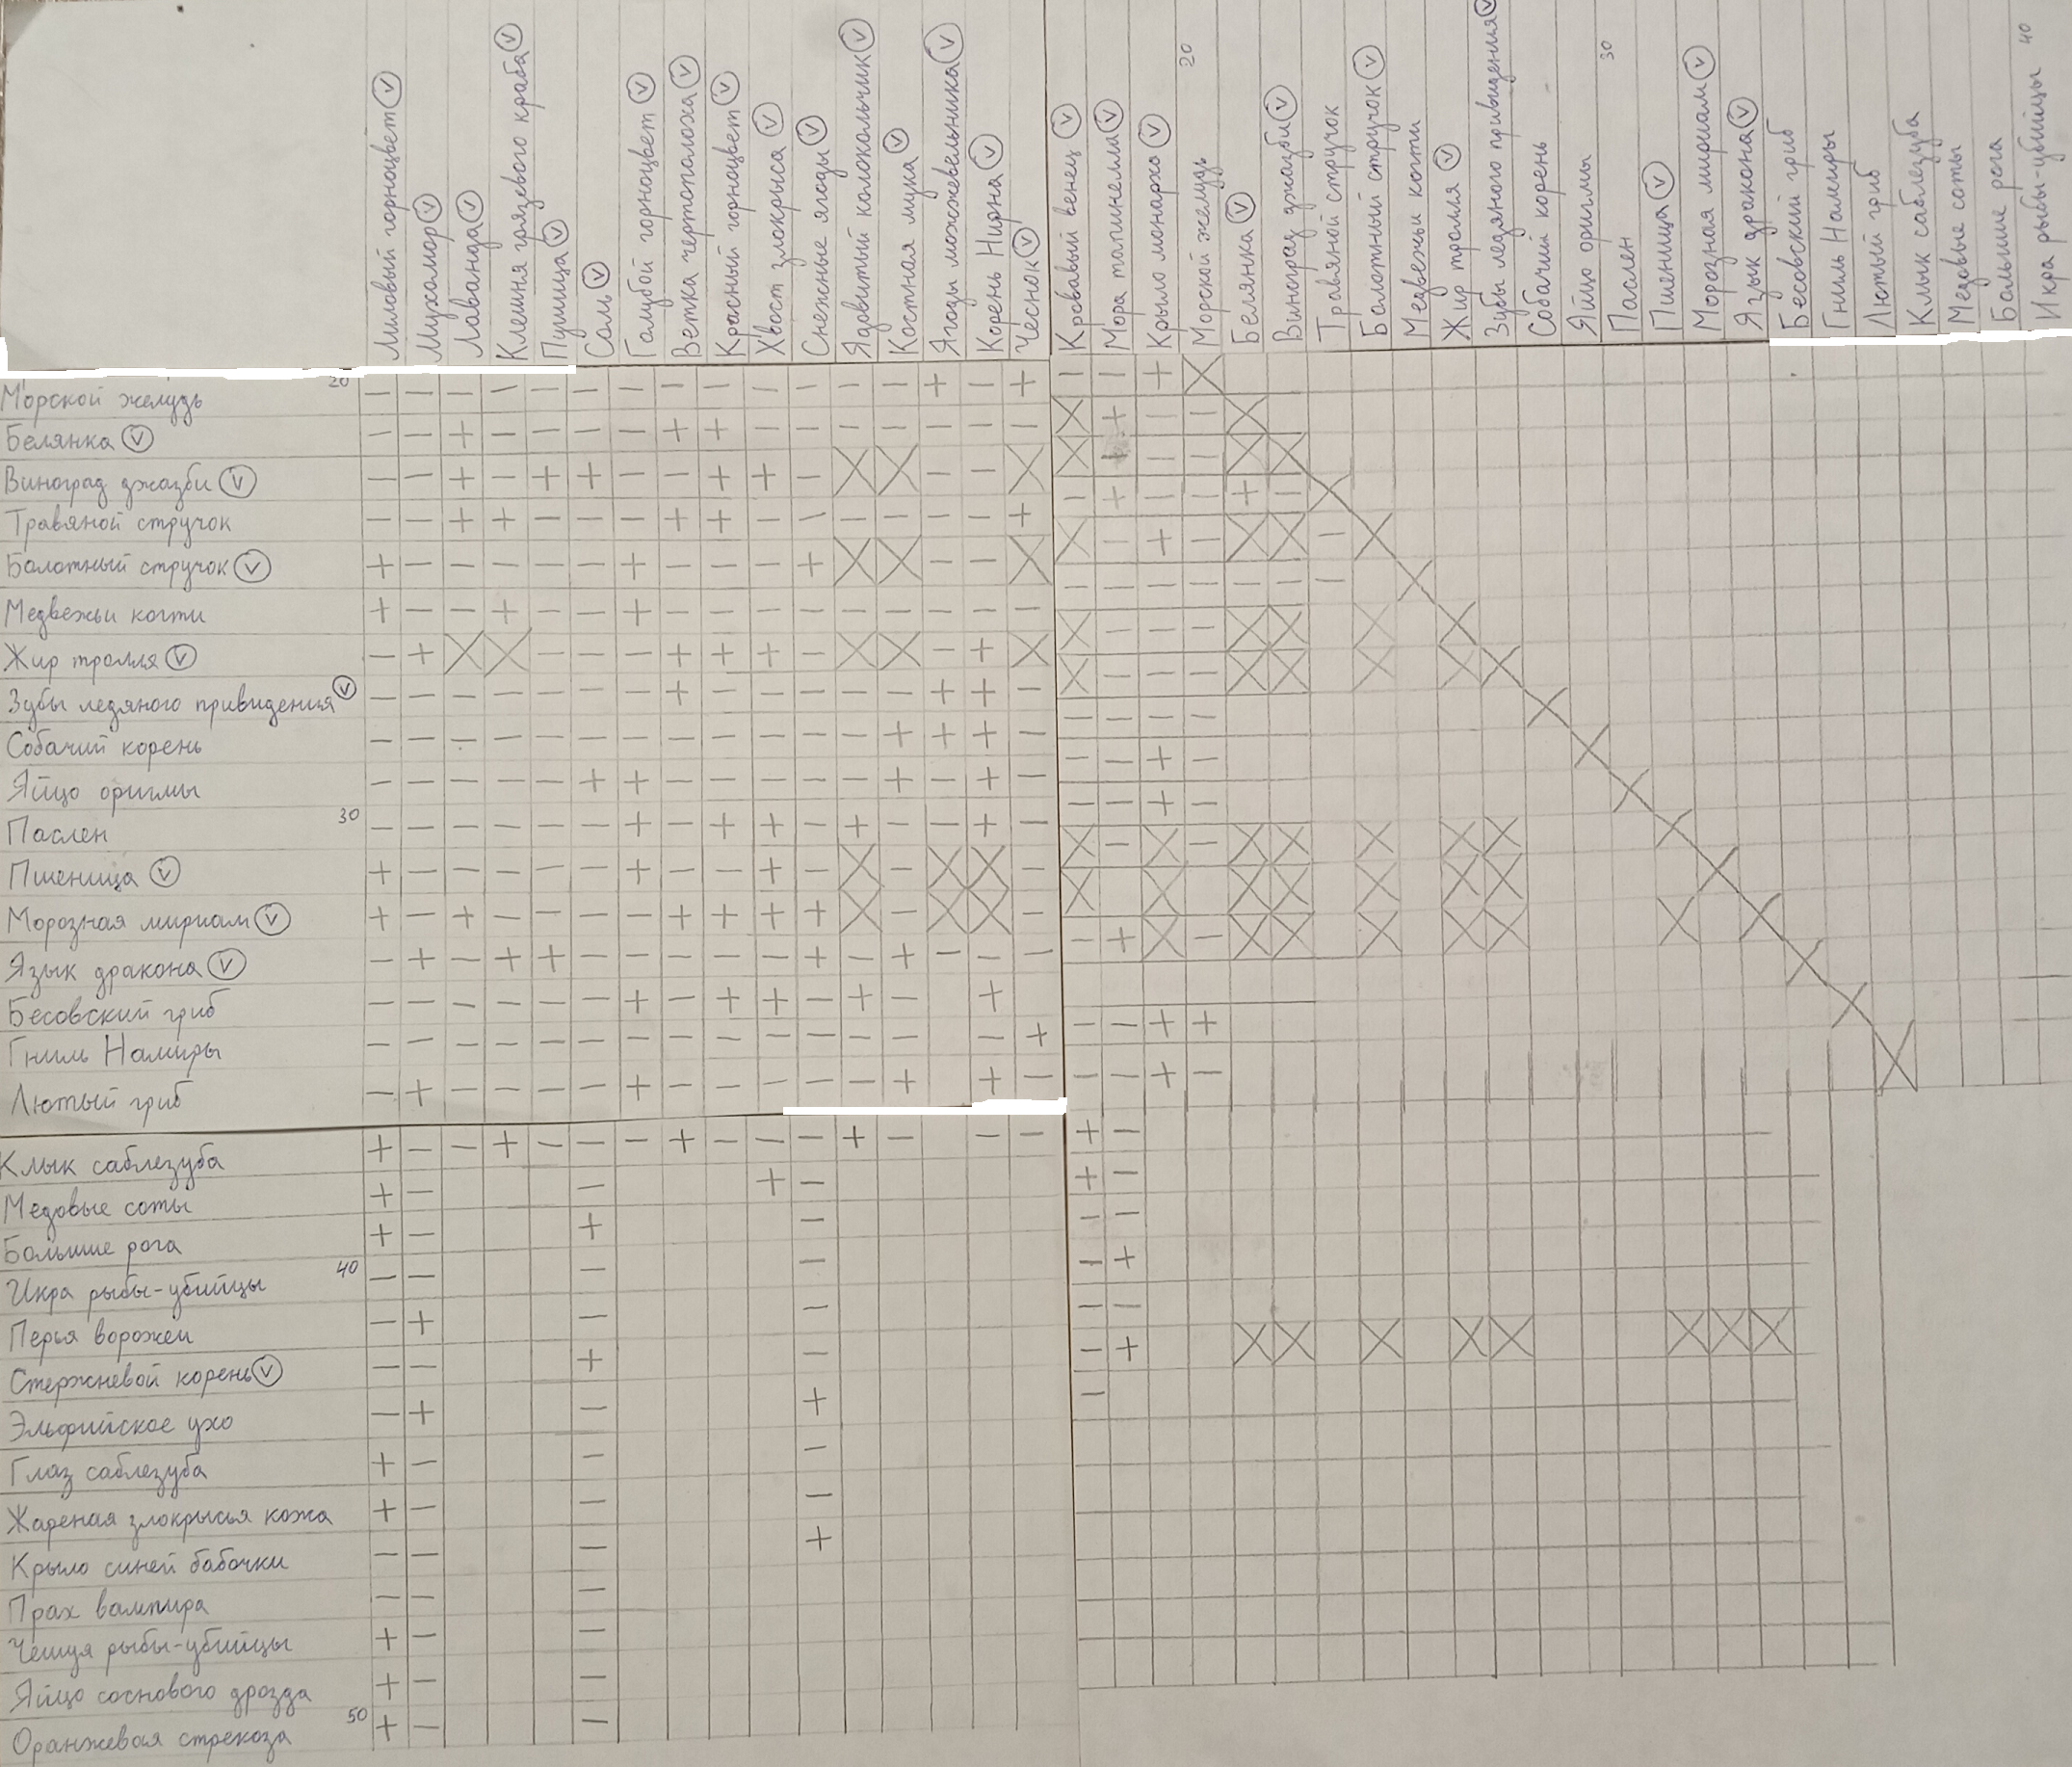 Лиловый горноцвет V
Мухомор V
Лаванда V
Клешня грязевого краба V
Пушица V
Соль V
Голубой горноцвет V
Ветка чертополоха V
Красный горноцвет V
Хвост злокрыса V
Снежные ягоды V
Ядовитый колокольчик V
Костная мука V
Ягоды можжевельника V
Корень Нирна V
Чеснок V
Кровавый венец V
Мора тапинелла V
Крыло монарха V
Морской желудь 20
Белянка V
Виноград джазби V
Травяной стручок
Болотный стручок V
Медвежьи когти
Жир тролля V
Зубы ледяного привидения V
Собачий корень
Яйцо коригмы
Паслен 30
Пшеница V
Морозная мириам V
Язык дракона V
Бесовский гриб
Гниль Намиры
Лютый гриб
Клык саблезуба
Медовые соты
Большие рога
Икра рыбы-убийцы 40
Морской желудь 20 — — — — — — — — — — — — — + — + — — + X
Белянка V — — + — — — — + + — — — — — — — X + — — X
Виноград джазби V — — + — + + — — + + — X X — — X X + — — X X
Травяной стручок — — + + — — — + + — — — — — — + — + — — + — X
Болотный стручок V + — — — — — + — — — + X X — — X X — + — X X — X
Медвежьи когти + — — + — — + — — — — — — — — — — — — — — — — — X
Жир тролля V — + X X — — — + + + — X X — + X X — — — X X X X
Зубы ледяного привидения V — — — — — — — + — — — — — + + — X — — — X X X X X
Собачий корень — — — — — — — — — — — — + + + — — — — — X
Яйцо оригмы — — — — — + + — — — — — + — + — — — + — X
Паслен 30 — — — — — — + — + + — + — — + — — — + — X
Пшеница V + — — — — — + — — + — X — X X — X — X — X X X X X X
Морозная мириам V + — + — — — — + + + + X — X X — X X X X X X X X
Язык дракона V — + — + + — — — — — + — + — — — — + X — X X X X X X X
Бесовский гриб — — — — — — + — + + — + — + X
Гниль Намиры — — — — — — — — — — — — — — + — — + + X
Лютый гриб — + — — — — + — — — — — + + — — — + — X
Клык саблезуба + — — + — — — + — — — + — — — + —
Медовые соты + — — + — + —
Большие рога + — + — — —
Икра рыбы-убийцы 40 — — — — — +
Перья ворожеи — + — — — —
Стержневой корень V — — + — — + X X X X X X X X
Эльфийское ухо — + — + —
Глаз саблезуба + — — —
Жареная злокрысья кожа + — — —
Крыло синей бабочки — — — +
Прах вампира — — —
Чешуя рыбы-убийцы + —
Яйцо соснового дрозда + — —
Оранжевая стрекоза 50 + — —